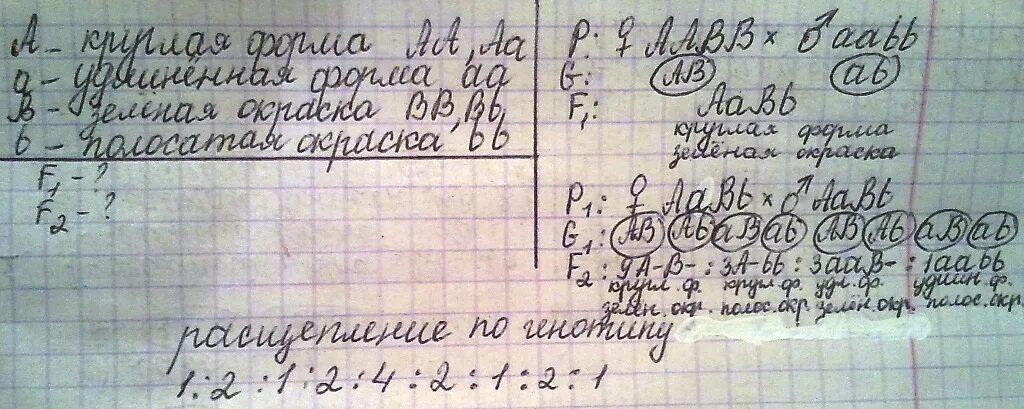 A - круглая форма AA, Aa
a - удлинённая форма aa
B - зелёная окраска BB, Bb
b - полосатая окраска bb
F1 - ?
F2 - ?
P: ♀ AABB × ♂ aabb
G: AB ab
F1: AaBb
круглая форма
зелёная окраска
P1: ♀ AaBb × ♂ AaBb
G1: AB Ab aB ab AB Ab aB ab
F2: 9A-B- : 3A-bb : 3aaB- : 1aabb
кругл. ф. кругл. ф. удл. ф. удлин. ф.
зелен. окр. полос. окр. зелён. окр. полос. окр.
расщепление по генотипу
1:2:1:2:4:2:1:2:1